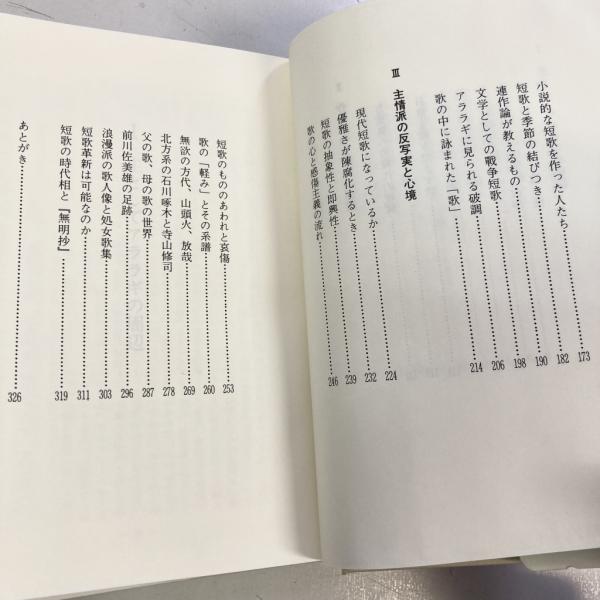 小説的な短歌を作った人たち……173
短歌と季節の結びつき……182
連作論が教えるもの……190
文学としての戦争短歌……198
アララギに見られる破調……206
歌の中に詠まれた「歌」……214
Ⅲ 主情派の反写実と心境
現代短歌になっているか……224
優雅さが陳腐化するとき……232
短歌の抽象性と即興性……239
歌の心と感傷主義の流れ……246
短歌のもののあわれと哀傷……253
歌の「軽み」とその系譜……260
無欲の方代、山頭火、放哉……269
北方系の石川啄木と寺山修司……278
父の歌、母の歌の世界……287
前川佐美雄の足跡……296
浪漫派の歌人像と処女歌集……303
短歌革新は可能なのか……311
短歌の時代相と『無明抄』……319
あとがき……326